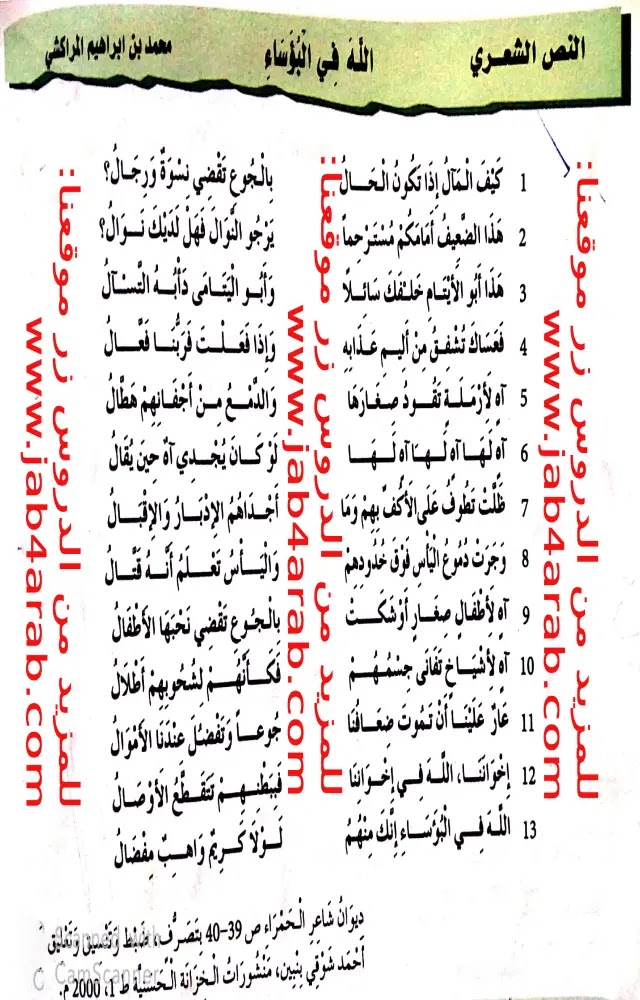 النص الشعــري اللَّهَ فِي الْبُؤَسَاءِ محمد بن ابراهيم المراكشي
1 كَيْفَ الْمَآلُ إِذَا تَكُونُ الْحَـــالُ بِالْجُوعِ تَقْضِي نِسْوَةٌ وَرِجَالُ؟
2 هَذَا الضَّعِيفُ أَمَامَكُمْ مُسْتَرْحِماً يَرْجُو النَّوَالَ فَهَلْ لَدَيْكَ نَـوَالُ؟
3 هَذَا أَبُو الأَيْتَـامِ خَلْفَكَ سَائِـلًا وَأَبُـو الْيَتَامَى دَأْبُـهُ التَّسْـآلُ
4 فَعَسَاكَ تُشْفِـقُ مِنْ أَلِيـمِ عَذَابِهِ وَإِذَا فَعَـلْـتَ فَرَبُّنَـا فَعَّـالُ
5 آهٍ لأَرْمَـلَـةٍ تَقُـودُ صِغَارَهَا وَالدَّمْـعُ مِـنْ أَجْفَانِهِمْ هَطَّالُ
6 آهٍ لَـهَـا آهٍ لَـهَـا آهٍ لَـهَـا لَوْ كَـانَ يُجْـدِي آهٌ حِينَ يُقَالُ
7 ظَلَّتْ تَطُوفُ عَلَى الأَكُفِّ بِهِمْ وَمَا أَجْدَاهُمُ الإِدْبَـارُ وَالإِقْبَـالُ
8 وَجَرَتْ دُمُوعُ الْيَأْسِ فَوْقَ خُدُودِهِمْ وَالْيَـأْسُ تَعْـلَمُ أَنَّـهُ قَتَّـالُ
9 آهٍ لأَطْفَـالٍ صِغَـارٍ أَوْشَكَـتْ بِالْجُـوعِ تَقْضِي نَحْبَهَا الأَطْفَالُ
10 آهٍ لأَشْيَـاخٍ تَفَانَى جِسْمُـهُـمْ فَكَـأَنَّهُـمْ لِشُحُوبِهِمْ أَطْلَالُ
11 عَارٌ عَلَيْنَـا أَنْ تَـمُوتَ ضِعَافُنَا جُوعـاً وَتَفْضُـلَ عِنْدَنَا الأَمْوَالُ
12 إِخْوَانَنَـا، اللَّـهَ فِـي إِخْـوَانِنَا فَبِبَطْنِهِـمْ تَتَقَطَّعُ الأَوْصَالُ
13 اللَّـهَ فِـي الْبُؤَسَـاءِ إِنَّكَ مِنْهُـمُ لَـوْلَا كَـرِيمٌ وَاهِـبٌ مِفْضَالُ
ديوَانُ شَاعِرِ الْحَمْرَاءِ ص 39-40 بِتَصَرُّف، ضَبْط وَتَنْسِيق وَتَعْلِيق
أَحْمَد شَوْقِي بِنْبِين، مَنْشُورَات الْخِزَانَة الْحَسَنِيَّة ط 1، 2000 م.
للمزيد من الدروس زر موقعنا:
www.jab4arab.com
للمزيد من الدروس زر موقعنا:
www.jab4arab.com
للمزيد من الدروس زر موقعنا:
www.jab4arab.com
Scanned with
CamScanner